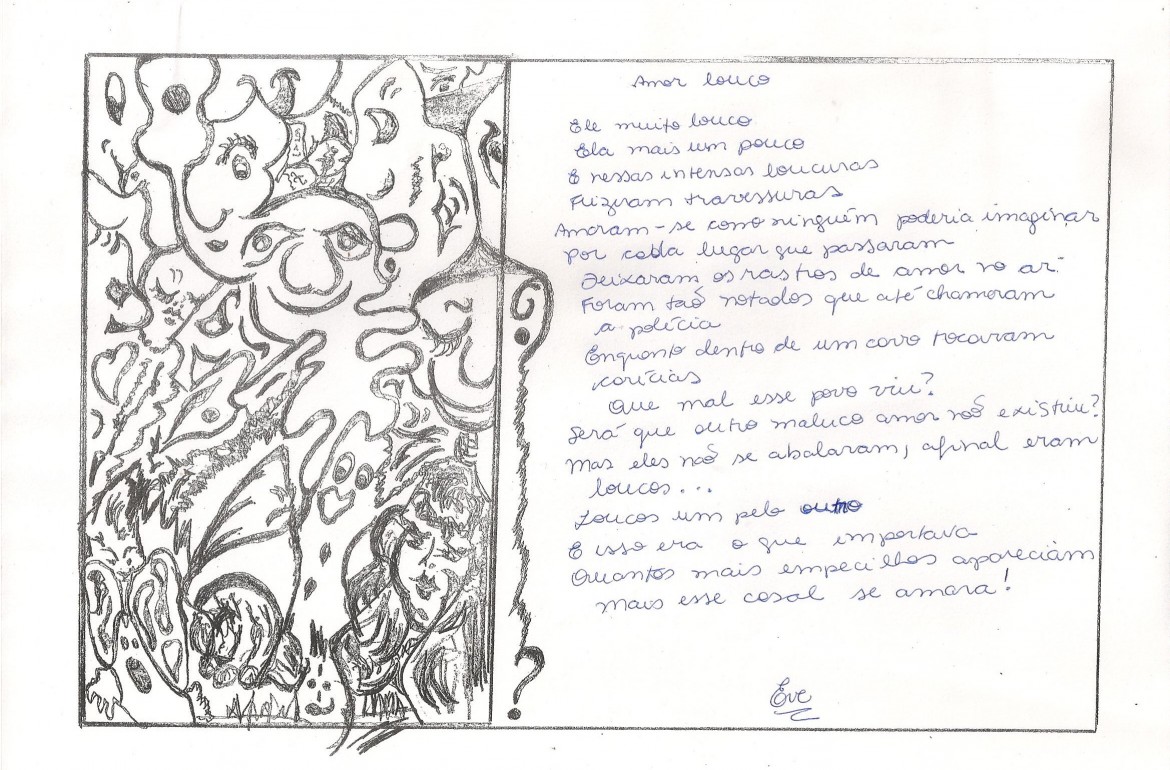 Amor louco
Ele muito louco
Ela mais um pouco
E nessas intensas loucuras
Fizeram travessuras
Amaram-se como ninguém poderia imaginar
por cada lugar que passaram
Deixaram os rastros de amor no ar.
Foram taõ notados que até chamaram
a polícia
Enquanto dentro de um carro trocavam
carícias
Que mal esse povo viu?
Será que outro maluco amor naõ existiu?
Mas eles naõ se abalaram, afinal eram
loucos...
Loucos um pelo outro
E isso era o que importava
Quantos mais empecilhos apareciam
mais esse casal se amara!
Eve
?